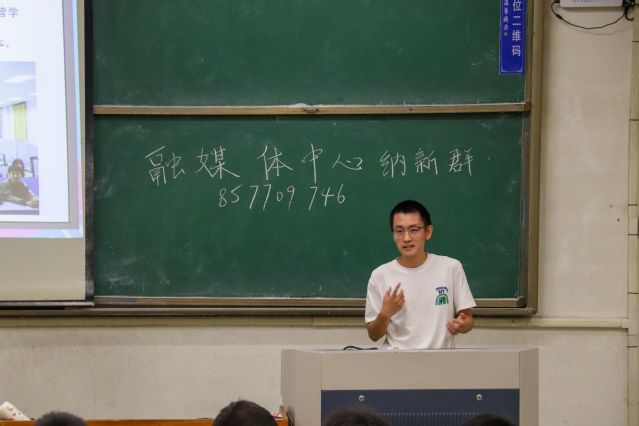 营学
融媒体中心纳新群
857709746
位二维码